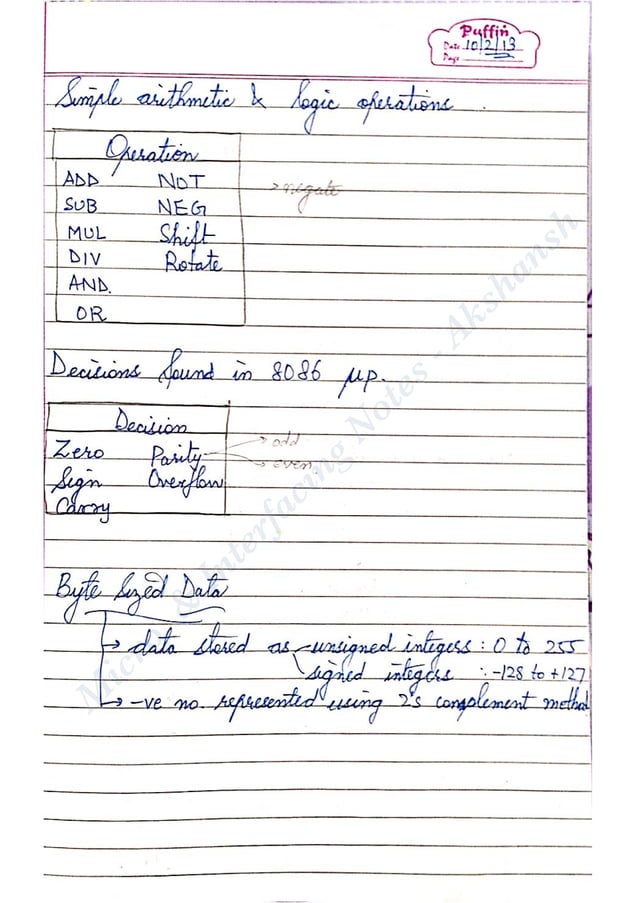 Puffin
Date 10/2/13
Page
Simple arithmetic & logic operations.
Operation
ADD NOT → negate
SUB NEG
MUL Shift
DIV Rotate
AND.
OR
Decisions found in 8086 μp.
Decision
Zero Parity → odd
→ even
Sign Overflow
Carry
Byte Sized Data
→ data stored as unsigned integers : 0 to 255
signed integers : -128 to +127
→ -ve no. represented using 2's complement method
Interfacing Notes - Akshansh